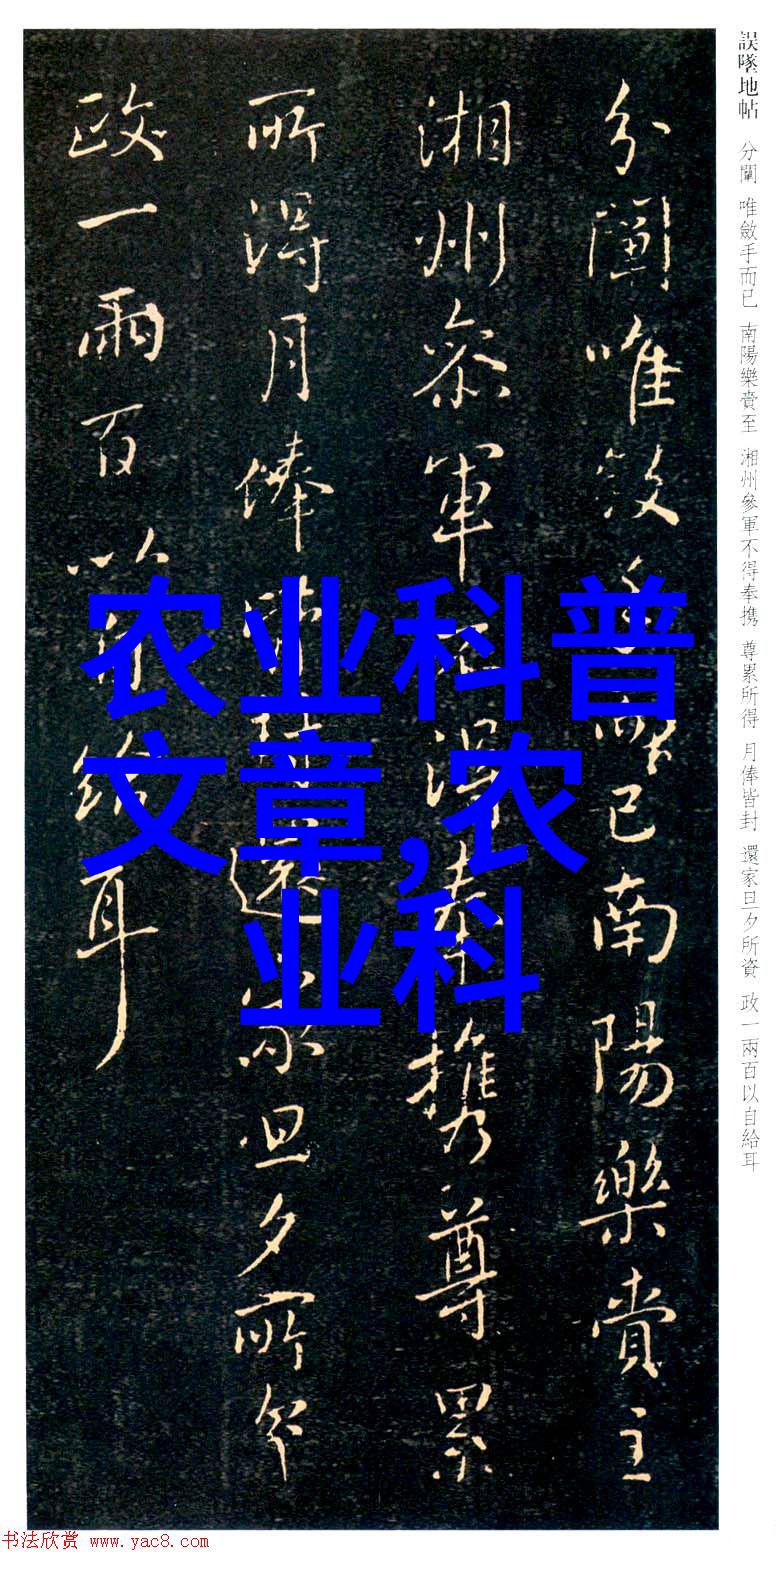 誤墜地帖 分闡 唯斂手而已 南陽樂賁至 湘州參軍不得奉携 尊累所得 月俸皆封 還家旦夕所資 政一兩百以自給耳
分闡唯斂手而已南陽樂賁至
湘州參軍不得奉携尊累
所得月俸皆封還家旦夕所資
政一兩百以自給耳
农业科普
文章,农
业科
书法欣赏 www.yac8.com